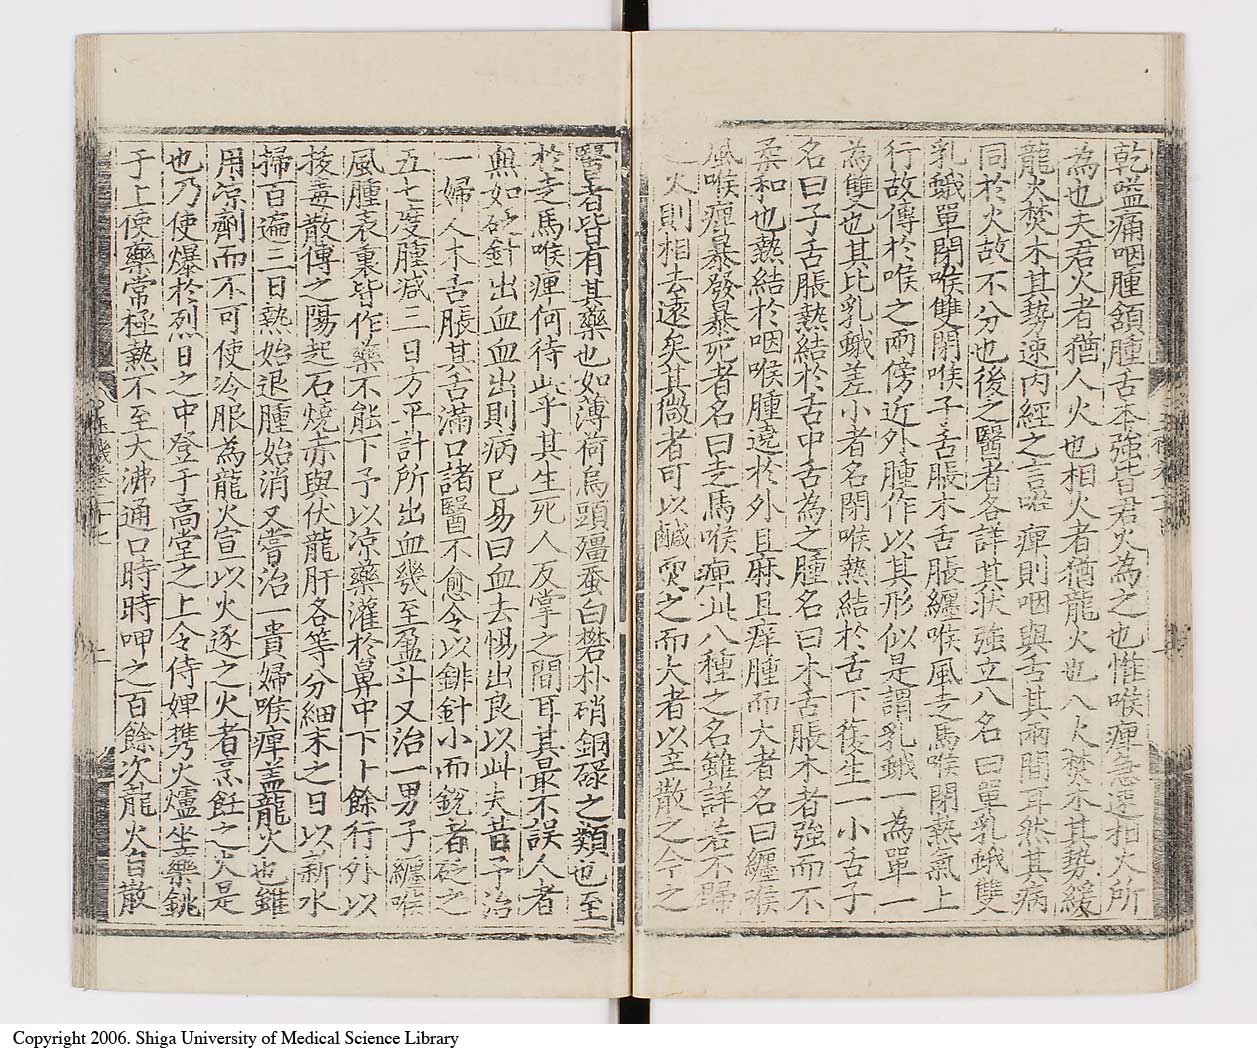 乾嗌痛咽腫頷腫舌本強皆君火為之也惟喉痺急速相火所
為也夫君火者猶人火也相火者猶龍火也人火焚木其勢緩
龍火焚木其勢速内經之言喉痺則咽與舌其兩間耳然其病
同於火故不分也後之醫者各詳其狀強立八名曰單乳蛾雙
乳蛾單閉喉雙閉喉子舌脹木舌脹纏喉風走馬喉閉熱氣上
行故傳於喉之兩傍近外腫作以其形似是謂乳蛾一為單一
為雙也其比乳蛾差小者名閉喉熱結於舌下復生一小舌子
名曰子舌脹熱結於舌中舌為之腫名曰木舌脹木者強而不
柔和也熱結於咽喉腫遶於外且麻且痒腫而大者名曰纏喉
風喉痺暴發暴死者名曰走馬喉痺此八種之名雖詳若不歸
之火則相去遠矣其微者可以鹹耎之而大者以辛散之今之
醫者皆有其藥也如薄荷烏頭殭蚕白礬朴硝銅碌之類也至
於走馬喉痺何待此乎其生死人反掌之間耳其最不誤人者
無如砭針出血血出則病已易曰血去惕出良以此夫昔予治
一婦人木舌脹其舌滿口諸醫不愈令以鈹針小而銳者砭之
五七度腫減三日方平計所出血幾至盈斗又治一男子纏喉
風腫表裏皆作藥不能下予以凉藥灌於鼻中下卜餘行外以
拔毒散傅之陽起石燒赤與伏龍肝各等分細末之日以新水
掃百遍三日熱始退腫始消又嘗治一貴婦喉痺盖龍火也雖
用凉劑而不可使冷服為龍火宜以火逐之火者烹飪之火是
也乃使爆於烈日之中登于高堂之上令侍婢携火爐坐藥銚
于上使藥常極熱不至大沸通口時時呷之百餘次龍火自散